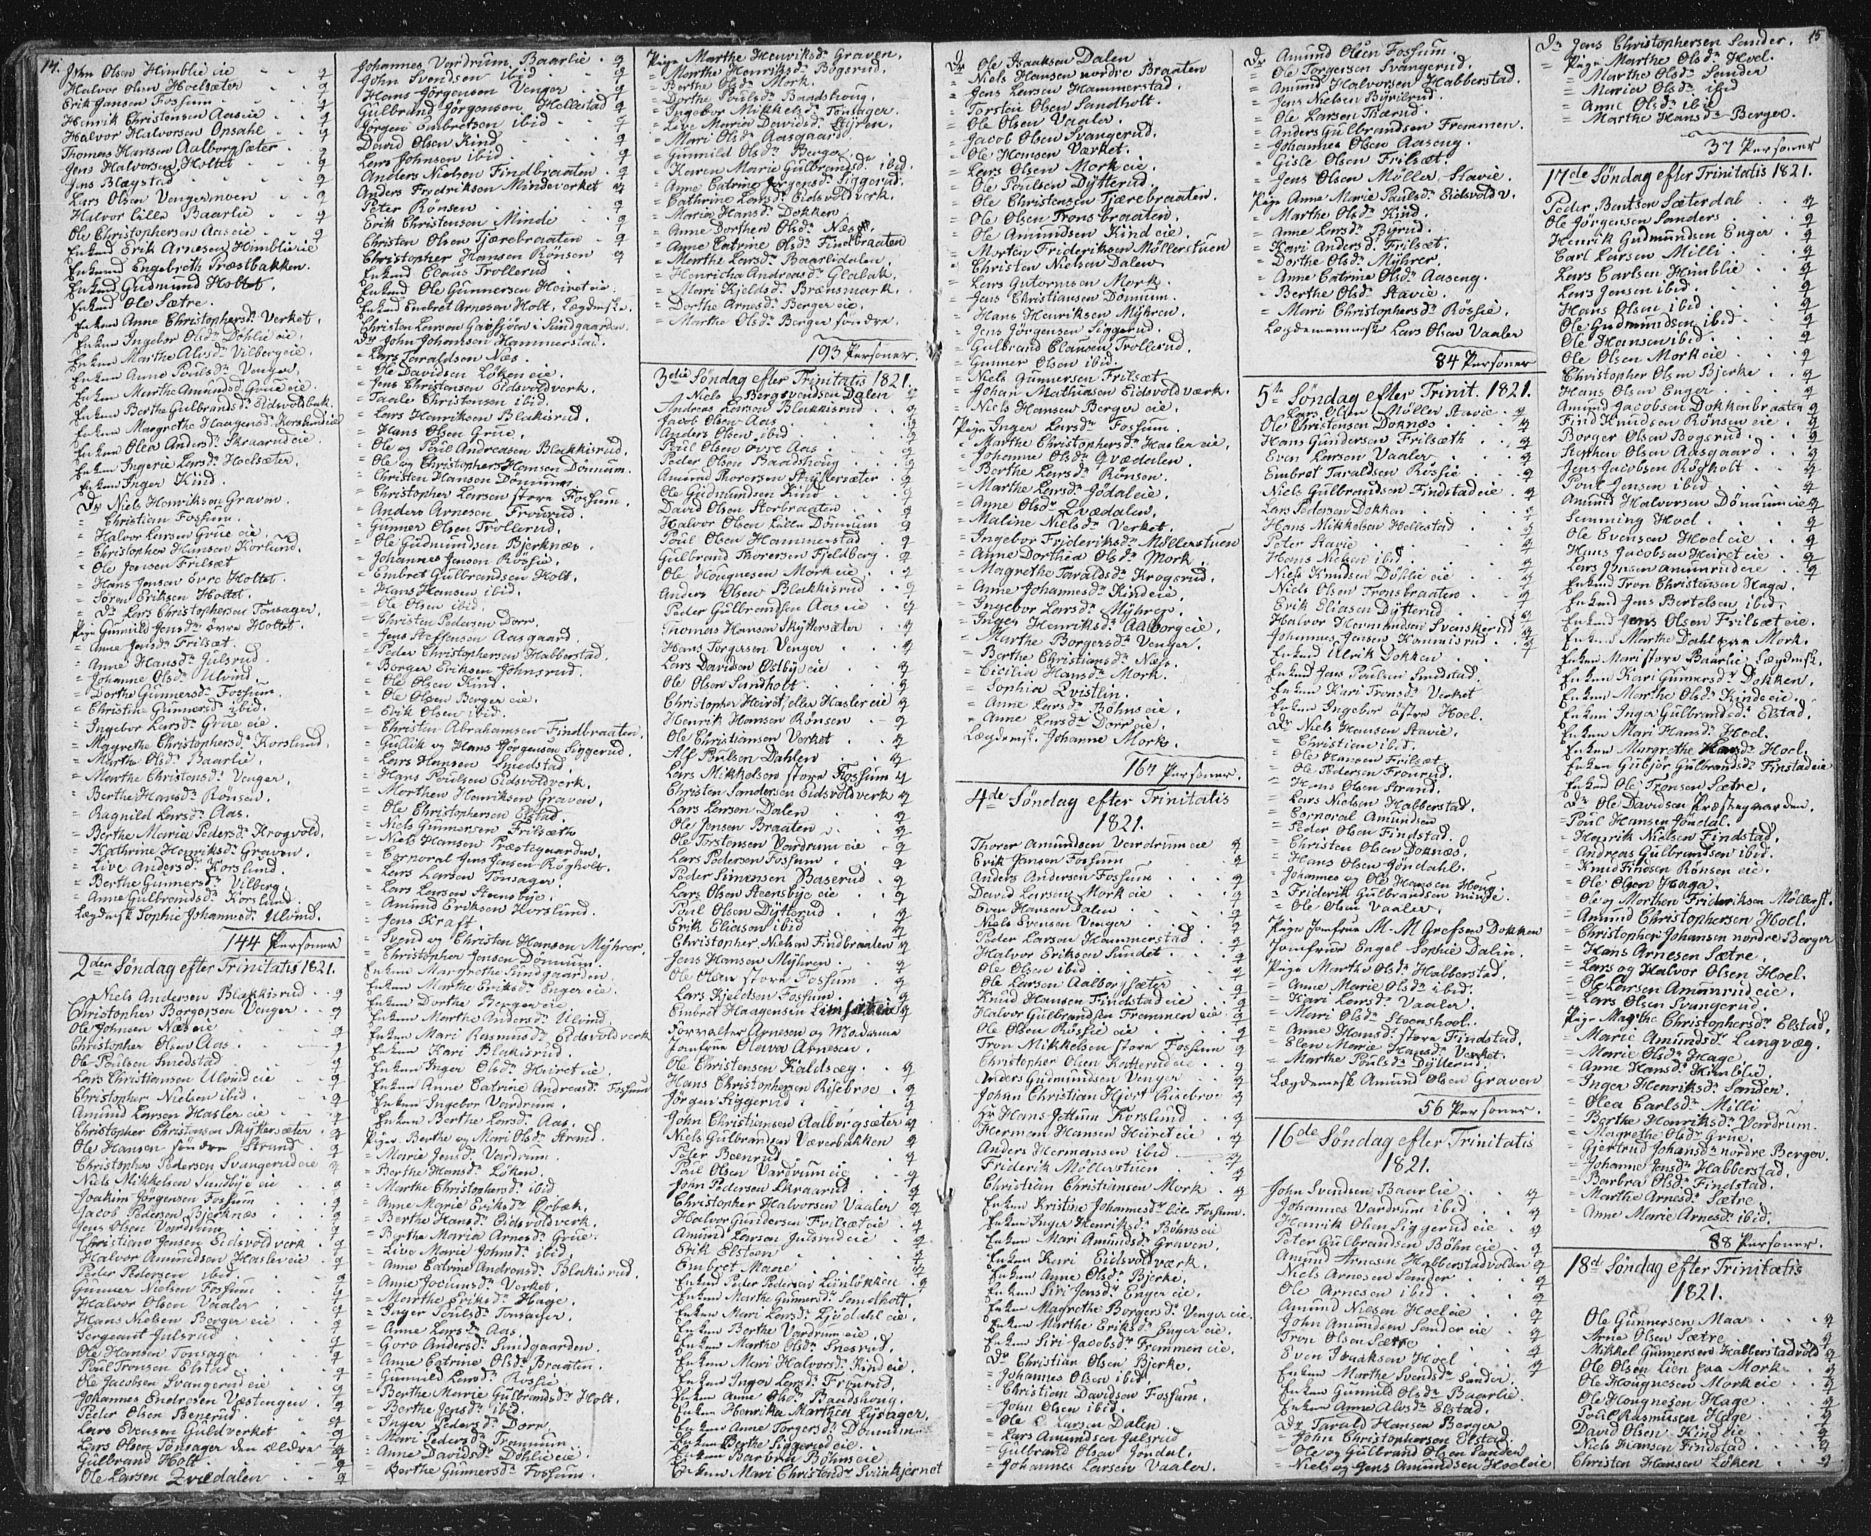 14.
John Olsen Himblie eie - - g
Halvor Olsen Hoelsæter - g
Erik Jansen Fossum - - g
Henrik Christensen Aaseie - - g
Halvor Halvorsen Opsahl - - g
Thomas Hansen Aalborgsæter - - g
Jens Halvorsen Holtet - - g
Jens Blegstad - - g
Lars Olsen Vengermoen - - g
Halvor Lille Baarlie - - g
Ole Christophersen Aaseie - - g
Enkemd Erik Arnesen Himblie eie
Enkemd Engebreth Præstbakken.
Enkemd Gudmund Holtet.
Enkemd Ole Sætre.
Enken Anne Christophersdr Verket.
Enken Ingebor Olsdr Døhlie eie.
Enken Marthe Alesdr Vilberg eie.
Enken Anne Poulsdr Venger.
Enken Marthe Amundsdr Grüe eie.
Enken Berthe Gulbrandsdr Eidsvoldbak.
Enken Margrethe Haagensdr Korslund eie
Enken Olea Andersdr Skraarud eie.
Enken Ingerie Larsdr Hoelsæter.
Enken Inger Kind.
Dr Niels Henriksen Graven.
= Christian Fossum.
= Halvor Larsen Grüe eie.
= Christopher Hansen Korslund.
= Ole Jensen Frilsæt
= Hans Jensen övre Holtet.
= Sören Eriksen Holtet.
= Dr Lars Christophersen Tonsager.
Pige Gunild Jensdr övre Holtet.
= Anne Jensdr Frilsæt.
= Anne Hansdr Julsrud.
= Johanne Olsdr Ulvind.
= Dorthe Gunnersdr Fossum.
= Christine Gunnersdr ibid.
= Ingebor Larsdr Grüe eie.
= Magrethe Christophersdr Korslund.
= Marthe Olsdr Baarlie.
= Marthe Christensdr Venger.
= Berthe Hansdr Rönsen.
= Ragnild Larsdr Aas.
= Berthe Maria Pedersdr Krogvold.
= Kathrine Henriksdr Graven.
= Live Andersdr Korslund.
= Berthe Gunnersdr Vilberg.
= Anne Gulbrandsdr Korslund.
Lægdensk Sophie Johannesdr Ulvind.
144 Personer
2den Søndag efter Trinitatis 1821.
Niels Andersen Blakkisrud - - g
Christopher Borgersen Venger - - g
Ole Johnsen Næs eie - - g
Christopher Olsen Aas - - g
Ole Poulsen Smedstad - - g
Lars Christiansen Ulvind eie - - g
Christopher Nielsen ibid. - - g
Amund Larsen Hasler eie - - g
Christopher Christensen Skyttersæter - g
Ole Hansen söndre Strand - - g
Christopher Pedersen Svangerud eie - g
Niels Mikkelsen Sundbye eie - - g
Joakim Jörgensen Fossum - - g
Jacob Pedersen Bjerknæs - - g
Jens Olsen Vardrum - - g
Christian Jensen Eidsvoldverk - g
Halvor Amundsen Hasler eie - - g
Peder Pedersen ibid. - - g
Gunner Nielsen Fossum - - g
Halvor Olsen Vaaler - - g
Hans Nielsen Berger eie - - g
Sergeant Julsrud - - g
Ole Hansen Tonsager - - g
Poul Tronsen Elstad - - g
Ole Jacobsen Svangerud eie - - g
Johannes Endresen Vestengen - g
Peder Olsen Benerud - - g
Lars Evensen Guldverket - - g
Lars Olsen Tonsager den ældre - g
Gulbrand Holt - - g
Ole Larsen Qvædalen - - g
Johannes Vardrum Baarlie - g
John Svendsen ibid - - g
Hans Jörgensen Venger - - g
Gulbrand Jörgensen Hellestad g
Jörgen Embretsen ibid - - g
David Olsen Kind - - g
Lars Johnsen ibid - - g
Anders Nielsen Findbraaten - g
Anders Fredriksen Mindeverket g
Peter Rönsen - - g
Erik Christensen Minde - - g
Christen Olsen Tjærebraaten - g
Christopher Hansen Rönsen g
Enkemd Claus Trollerud.
Enkemd Ole Gunnersen Heiret eie.
Enkemd Embret Arnesen Holt, Lægdensk.
Christen Larsen Garsjöen i Sundgaarden.
Dr John Johnnsen Hammerstad.
- Lars Taraldsen Næs.
= Ole Davidsen Løken eie.
= Jens Christensen Eidsvoldverk.
= Taale Christensen ibid.
= Lars Henriksen Blakisrud.
= Hans Olsen Grüe.
= Ole og Poul Andreasen Blakkisrud.
= Ole og Christopher Hansen Dönnum.
= Christen Hansen Dönnum
= Christopher Larsen store Fossum.
= Anders Arnesen Frourud.
= Gunner Olsen Trollerud.
= Ole Gudmundsen Bjerknæs.
= Johannes Jensen Rösjie.
= Embret Gulbrandsen Holt.
= Hans Hansen ibid.
= Ole Olsen ibid.
= Christen Pedersen Dorr.
= Jens Steffensen Aasgaard.
= Peder Christophersen Habberstad.
= Borger Eriksen Johnsrud.
= Ole Olsen Kind.
= Ole Olsen Berger eie.
= Erik Olsen ibid.
= Christen Abrahamsen Findbraaten.
= Gullik og Hans Jörgensen Siggerud.
= Lars Hansen Smedstad.
= Hans Poulsen Eidsvoldverk.
= Morthen Henriksen Graven.
= Ole Christophersen Elstad.
= Niels Gunnersen Frilsæth
= Niels Hansen Præstegaarden.
= Corporal Jens Jensen Rögholt.
= Lars Larsen Tonsager.
= Lars Larsen Steensbye.
= Amund Eriksen Korslund.
= Jens Kraft.
= Svend og Christen Hansen Mÿhrer.
= Christopher Jensen Dönnum.
Enken Margrethe Sundgaarden.
Enken Marthe Eriksdr Enger eie.
Enken Dorthe Berger eie
Enken Marthe Andersdr Ulvind.
Enken Mari Rasmusdr Eidsvoldverk
Enken Kari Blakisrud.
Enken Inger Olsdr Heiret eie.
Enken Anne Catrine Andreasdr Fossum
Enken Ingebor Vardrum.
Enken Berthe Larsdr Aas.
Pige Berthe og Mari Olsdr Strand.
= Marie Jensdr Vardrum.
= Berthe Hansdr Löken.
= Marthe Christophersdr ibid
= Anne Marie Eriksdr Orbæk.
= Berthe Hansdr Eidsvoldverk.
= Berthe Maria Arnesdr Grüe.
= Live Marie Johnsdr ibid.
= Anne Catrine Andreasdr Blakisrud.
= Anne Jochumsdr Verket.
= Marthe Eriksdr Hage.
= Inger Poulsdr Tonsager.
= Anne Larsdr Aas.
= Goro Andersdr Sundgaarden.
= Anne Catrine Olsdr Braaten.
= Gunnild Larsdr Rösjie.
= Berthe Marie Gulbrandsdr Holt.
= Berthe Jensdr ibid.
= Inger Pedersdr Dorr.
= Mari Pedersdr Tremmum.
= Anne Davidsdr Döhlie eie.
= Berthe Gunnersdr Fossum.
Pige Marthe Henriksdr Graven.
= Marthe Henriksdr Bogsrud.
= Berthe Olsdr Mork.
= Dorthe Poulsdr Baadshoug.
= Ingebor Mikkelsdr Tonsager.
= Live Maria Davidsdr Mÿhrer.
= Mari Olsdr Aasgaard.
= Gunnild Olsdr Berger
= Karen Marie Gulbrandsdr ibid.
= Anne Catrine Jörgensdr Siggerud.
= Cathrine Larsdr Eidsvoldverk.
= Maria Hansdr Dokken.
= Anne Dorthea Olsdr Næs.
= Anne Catrine Olsdr Findbraaten
= Marthe Larsdr Baarlidalen.
= Henricha Andreasdr Glabak.
= Mari Kjeldsdr Brænsmark.
= Dorthe Arnesdr Berger eie.
= Marthe Olsdr Berger söndre
193 Personer.
3die Søndag efter Trinitatis 1821.
Niels Bergsvendsen Dalen g
Andreas Larsen Blakkisrud - g
Jacob Olsen Aas - - g
Anders Olsen ibid - - g
Poul Olsen övre Aas - - g
Peder Olsen Baadshoug - g
Amund Thorersen Skyttersæter - g
Ole Gudmundsen Kind - - g
David Olsen Storbraaten - g
Halvor Olsen Lille Dönnum g
Poul Olsen Hammerstad - g
Gulbrand Thorersen Fjeldberg - g
Ole Hougnesen Mork eie - g
Anders Olsen Blakkisrud - g
Peder Gulbrandsen Aas eie - g
Thomas Hansen Skyttersæter - g
Hans Torgersen Venger - - g
Lars Davidsen Ostbye eie - g
Ole Olsen Sundholt - - g
Christopher Heiret, eller Hasler eie g
Henrik Hansen Rönsen - g
Ole Christiansen Verket - - g
Alf Poulsen Dahlen - - g
Lars Mikkelsen store Fossum g
Christen Sandersen Eidsvoldverk g
Lars Larsen Dalen - - g
Ole Jensen Braaten - - g
Ole Torstensen Vardrum eie - g
Lars Pedersen Fossum - - g
Peder Simensen Baserud - g
Lars Olsen Steensbye eie - g
Poul Olsen Dytterud - - g
Erik Eliasen ibid - - g
Christopher Nielsen Findbraaten g
Jens Hansen Mÿhren - - g
Ole Olsen store Fossum - g
Lars Kjeldsen Fossum - - g
Embret Haagensen Limsæt eie g
Forvalter Arnesen og Madame
Jomfrue Oleva Arnesen.
Ole Christensen Kaldsæg - - g
Hans Christophersen Risebroe - g
Jörgen Siggerud - - g
John Christiansen Aalborgsæter g
Niels Gulbrandsen Væverbakken g
Peder Benrud - - g
Poul Olsen Vardrum eie - g
John Pedersen Skraarud - g
Christopher Halvorsen Vaaler g
Halvor Gundersen Frilsæt eie g
Amund Larsen Julsrud eie - g
Erik Elstøen - - g
Embret Maae - - g
Enkemd Peder Pedersen Linlökken g
Enken Marthe Gunnersdr Sandholt.
Enken Mari Larsdr Gjöldahl eie.
Enken Berthe Vardrum eie.
Enken Marthe Olsdr Snesrud.
Enken Mari Halvorsdr Kind eie.
Enken Inger Larsdr Frourud.
Enken Anne Olsdr Baadshoug.
Enken Henrika Marthea Lystager.
Enken Anne Torgersdr Dönnum.
Enken Berthe Siggerud eie.
Enken Barbra Böhns eie.
Enken Mari Christensdr Svinkjernet
Dr Ole Isaaksen Dalen
= Niels Hansen nordre Braaten
= Jens Larsen Hammerstad.
= Torsten Olsen Sandholt.
= Ole Olsen Vaaler.
= Jacob Olsen Svangerud.
= Ole Hansen Værket.
= Lars Olsen Mork eie.
= Ole Poulsen Dÿtterud.
= Ole Christensen Tjærebraaten.
= Ole Olsen Tronsbraaten.
= Ole Amundsen Kind eie.
= Morten Frideriksen Möllerstuen
= Christen Nielsen Dalen.
= Lars Gutormsen Mork.
= Jens Christiansen Dönnum.
= Hans Henriksen Mÿhren.
= Jens Jörgensen Siggerud.
= Gulbrand Clausen Trollerud.
= Gunner Olsen ibid.
= Niels Gunnersen Frilsæt.
= Johan Mathiasen Eidsvoldværk.
= Niels Hansen Berger eie.
Pige Inger Larsdr Fossum.
- Marthe Christophersdr Hasler eie.
= Johanne Olsdr Qvædalen.
= Berthe Larsdr Rönsen.
= Marthe Larsdr Jødal eie.
= Anne Olsdr Qvædalen.
= Maline Nielsdr Verket.
= Ingebor Frideriksdr Möllerstuen
= Anne Dorthea Olsdr Mork.
= Magrethe Taraldsdr Krogsrud.
= Anne Johannesdr Kind eie.
= Ingebor Larsdr Mÿhrer.
= Inger Henriksdr Aalborg eie.
= Marthe Borgersdr Venger.
= Berthe Christiansdr Næss.
= Cicilia Hansdr Mork.
= Sophia Qvistlin.
= Anne Larsdr Böhns eie.
= Anne Larsdr Dorr eie.
Lægdensk. Johanne Mork.
164 Personer.
4de Søndag efter Trinitatis
1821.
Thorer Amundsen Vardrum eie g
Erik Jansen Fossum - - g
Anders Andersen Fossum - g
David Larsen Mork eie - - g
Even Hansen Dalen - - g
Niels Evensen Venger - - g
Peder Larsen Hammerstad - g
Halvor Eriksen Sundet - - g
Ole Olsen ibid - - g
Ole Larsen Aalborgsæter - g
Knud Hansen Findstad eie - g
Halvor Gulbrandsen Fremmen eie g
Ole Olsen Rösjie eie - - g
Tron Mikkelsen store Fossum g
Christopher Olsen Katterud eie - g
Anders Gudmundsen Venger - g
Johan Christian Hjort Risebroe g
Hr Hans Jottum Korslund - g
Herman Hansen Heiret eie - g
Anders Hermansen ibid - - g
Friderik Möllerstuen - - g
Christian Christiansen Mork - g
Enken Kristine Johannesdr Lille Fossum.
Enken Inger Henriksdr Böhns eie
Enken Mari Amundsdr Graven.
Enken Kari Eidsvoldværk.
Enken Anne Olsdr Bjerke.
Enken Siri Jensdr Enger eie.
Enken Magrethe Borgersdr Venger eie.
Enken Marthe Eriksdr Enger eie.
Enken Siri Jacobsdr Fremmen eie.
Dr Christian Olsen Bjerke.
= Johannes Olsen ibid.
= Christian Davidsen Fossum.
= John Olsen ibid.
= Ole Larsen Dalen.
= Lars Amundsen Julsrud
= Gulbrand Olsen Jöndal.
= Johannes Larsen Vaaler.
Dr Amund Olsen Fossum.
= Ole Torgersen Svangerud.
= Amund Halvorsen Habberstad.
= Jens Nielsen Bÿrilrud.
= Ole Larsen Tharud.
= Anders Gulbrandsen Fremmen.
= Johannes Olsen Aaseng.
= Gisle Olsen Frilsæt.
= Jens Olsen Möller Stavie.
Pige Anne Marie Paulsdr Eidsvoldv.
= Marthe Olsdr Kind.
= Anne Larsdr Byrud.
= Kari Andersdr Frilsæt.
= Dorthe Olsdr Mÿhrer.
= Anne Catrine Olsdr Aaseng.
= Berthe Olsdr Stavie.
= Mari Christophersdr Rösjie.
Lægdemanske Lars Olsen Vaaler
84 Personer
5te Søndag efter Trinit. 1821.
Lars Olsen Möller Stavie - g
Ole Christensen Doknæs - - g
Hans Gundersen Frilsæth - g
Even Larsen Vaaler - - g
Embret Taraldsen Rösjie - g
Niels Gulbrandsen Findstad eie - g
Lars Pedersen Dokken - - g
Hans Mikkelsen Hellestad - g
Peter Stavie - - g
Hans Nielsen ibid - - g
Niels Knudsen Döhlie eie - g
Niels Olsen Tronsbraaten - g
Erik Eliasen Dytterud - - g
Halvor Hermandsen Svenskerud g
Johannes Jensen Kammisrud g
Enkemd Ulrik Dokken - - g
Enkemd Jens Poulsen Smedstad.
Enken Kari Tronsdr Verket
Enken Ingebor östre Hoel.
Dr Niels Hansen Stavie.
= Christian ibid.
= Ole Hansen Frilsæt.
= Ole Pedersen Frourud.
= Hans Olsen Strand.
= Lars Nielsen Habberstad.
= Corporal Amundsen
= Peder Olsen Findstad.
= Christen Olsen Doknæs.
= Hans Olsen Jöndahl.
= Johannes og Ole Hansen Houg.
= Friderik Gulbrandsen Minde.
= Ole Olsen Vaaler.
Pige Jomfrue M. M Grefsen Dokken
Jomfrue Engel Sophie Dalin.
Pige Marthe Olsdr Habberstad.
= Anne Marie Olsdr ibid.
= Kari Larsdr Vaaler.
= Mari Olsdr Steenshoel.
= Anne Hansdr store Findstad.
= Elen Marie Hansdr Verket.
= Marthe Poulsdr Dÿtterud.
Lægdemsk Amund Olsen Graven
56 Personer.
16de Søndag efter Trinitatis
1821.
John Svendsen Baarlie - - g
Johannes Vardrum ibid. - g
Henrik Olsen Siggerud eie - g
Peter Gulbrandsen Böhn eie - g
Amund Arnesen Habberstadvolden g
Niels Arnesen Sander - - g
Ole Arnesen ibid - - g
Amund Niesen Hoel eie - - g
John Amundsen Sander eie - g
Tron Olsen Sætre - - g
Even Isaaksen Hoel - - g
Enken Marthe Svendsdr Sander.
Enken Gunild Olsdr Baarlie.
Enken Anne Alesdr Elstad.
Dr Tarald Hansen Berger
= John Christophersen Elstad.
= Ole og Gulbrand Olsen Sanden
= Niels og Jens Amundsen Hoel eie
15
Dr Jens Christophersen Sander.
Pige Marthe Olsdr Hoel.
= Marthe Olsdr Sander
= Maria Olsdr ibid
= Anne Olsdr ibid
= Marthe Hansdr Berger.
37 Personer
17de Søndag efter Trinitatis 1821.
Peder Bentsen Sæterdal - - g
Ole Jörgensen Sanders - g
Henrik Gudmundsen Enger - g
Carl Larsen Milli - - g
Lars Carlsen Himblie - - g
Lars Jensen ibid - - g
Hans Olsen ibid - - g
Ole Gudmundsen ibid - - g
Ole Hansen ibid - - g
Ole Olsen Mork eie - - g
Christopher Olsen Bjerke - g
Hans Olsen Enger - - g
Amund Jacobsen Dokkenbraaten g
Find Knudsen Rönsen eie - g
Borger Olsen Bogsrud - - g
Stephen Olsen Aasgaard - g
Jens Jacobsen Rögholt - - g
Poul Jensen ibid - - g
Amund Halvorsen Dönnum eie g
Semming Hoel - - g
Ole Evensen Hoel eie - - g
Hans Jacobsen Heiret eie - g
Lars Jensen Amunrud eie - g
Enkemd Tron Christensen Haga.
Enkemd Jens Bertelsen ibid.
Enkemd Jens Olsen Frilsæt eie.
Enken Marthe Dahl fra Mork.
Enken Mari store Baarlie, Lægdensk.
Enken Kari Gunnersdr Dokken.
Enken Marthe Olsdr Kind eie.
Enken Inger Gulbrandsdr Elstad.
Enken Mari Hansdr Hoel.
Enken Margrethe Hansdr Hoel.
Enken Gubjör Gulbrandsdr Finstad eie
Enkemd Ole Tronsen Sætre.
Dr Ole Davidsen Præstegaarden.
= Poul Hansen Jöndal.
= Henrik Nielsen Findstad.
= Andreas Gulbrandsen ibid.
= Knud Findsen Rönsen eie.
= Ole Olsen Haga.
= Ole og Morthen Frideriksen Möllerst.
= Amund Christophersen Hoel.
= Christopher Johansen nordre Berger
= Hans Arnesen Sætre.
= Lars og Halvor Olsen Hoel.
= Ole Larsen Amunrud eie.
= Lars Olsen Svangerud.
Pige Magrthe Christophersdr Elstad.
= Marie Amundsdr Lungvæg.
= Marie Olsdr Hage.
= Anne Hansdr Himblie.
= Inger Henriksdr Sander.
= Olea Carlsdr Milli
= Berthe Henriksdr Vardrum.
= Magrethe Olsdr Grüe.
= Gjertrud Johansdr nordre Berger.
= Johanne Jensdr Habberstad.
= Barbra Olsdr Findstad.
= Marthe Arnesdr Sætre.
= Anne Marie Arnesdr ibid.
88 Personer.
18d Søndag efter Trinitatis
1821.
Ole Gunnersen Maa - - g
Arne Olsen Sætre - - g
Mikkel Gunnersen Habberstadvold g
Ole Olsen Lien paa Mork - g
Ole Hougnesen Mork eie - - g
Ole Hougnesen Hage - - g
Poul Rasmusen Hage - - g
David Olsen Kind eie - - g
Niels Hansen Findstad - - g
Christen Hansen Løken - - g